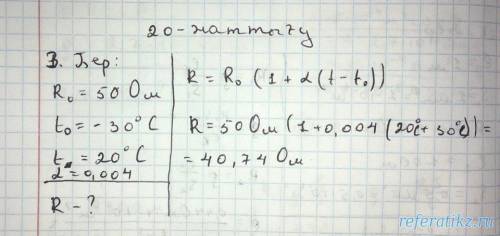 20-жаттығу
3. Бер:
R₀ = 50 Ом
t₀ = - 30°C
t = 20°C
α = 0,004
R - ?
R = R₀ (1 + α (t - t₀))
R = 50 Ом (1 + 0,004 (20°C + 30°C)) =
= 40,74 Ом
referatikz.ru